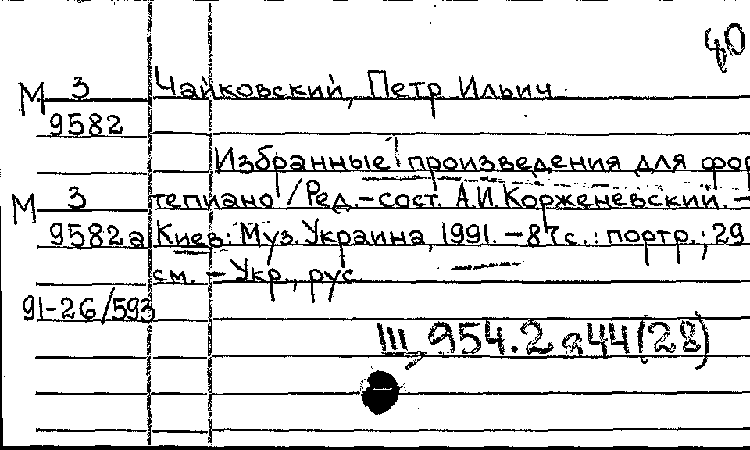 80
М 3 Чайковский, Петр Ильич
9582
Избранные произведения для фор
М 3 тепиано / Ред.-сост. А.И. Корженевский. –
9582а Киев: Муз. Украина, 1991. – 87 с.: портр.; 29
см. – Укр., рус
91-26/593
III 954.2 я 44(28)